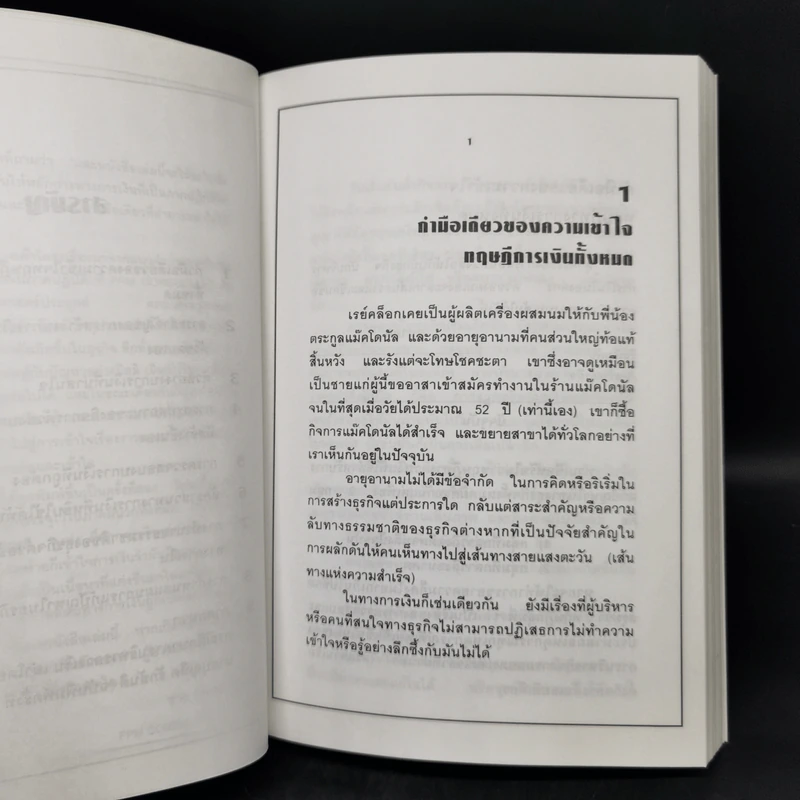 1
1
กำมือเดียวของความเข้าใจ
ทฤษฎีการเงินทั้งหมด
เรย์คล็อกเคยเป็นผู้ผลิตเครื่องผสมนมให้กับพี่น้อง
ตระกูลแม๊คโดนัล และด้วยอายุอานามที่คนส่วนใหญ่ท้อแท้
สิ้นหวัง และรังแต่จะโทษโชคชะตา เขาซึ่งอาจดูเหมือน
เป็นชายแก่ผู้นี้ขออาสาเข้าสมัครทำงานในร้านแม๊คโดนัล
จนในที่สุดเมื่อวัยได้ประมาณ 52 ปี (เท่านี้เอง) เขาก็ซื้อ
กิจการแม๊คโดนัลได้สำเร็จ และขยายสาขาได้ทั่วโลกอย่างที่
เราเห็นกันอยู่ในปัจจุบัน
อายุอานามไม่ได้มีข้อจำกัด ในการคิดหรือริเริ่มใน
การสร้างธุรกิจแต่ประการใด กลับแต่สาระสำคัญหรือความ
ลับทางธรรมชาติของธุรกิจต่างหากที่เป็นปัจจัยสำคัญใน
การผลักดันให้คนเห็นทางไปสู่เส้นทางสายแสงตะวัน (เส้น
ทางแห่งความสำเร็จ)
ในทางการเงินก็เช่นเดียวกัน ยังมีเรื่องที่ผู้บริหาร
หรือคนที่สนใจทางธุรกิจไม่สามารถปฏิเสธการไม่ทำความ
เข้าใจหรือรู้อย่างลึกซึ้งกับมันไม่ได้